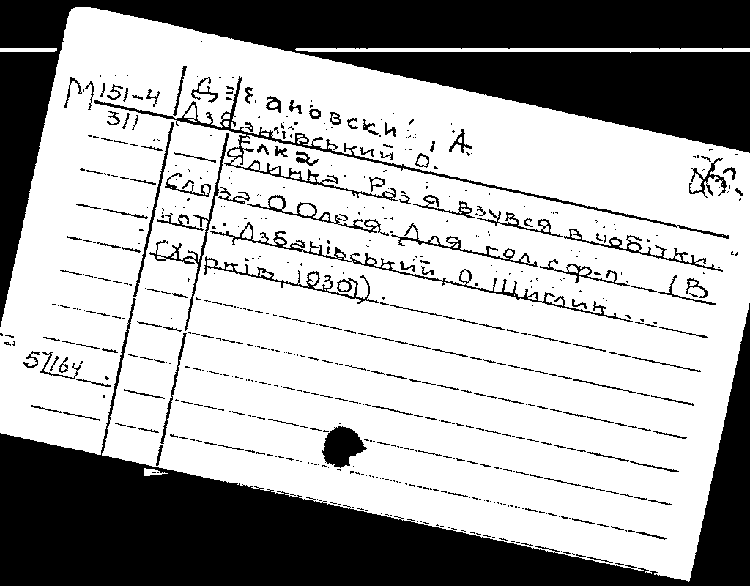 М 151-4
311
Дзбановский, А.
Дзбанівський, О.
Елка
Ялинка „Раз я взувся в чобітки."
Слова О. Олеся. Для гол. с ф-п. (В
нот.: Дзбанівський, О. Щиглик....
[Харків, 1930]).
57164